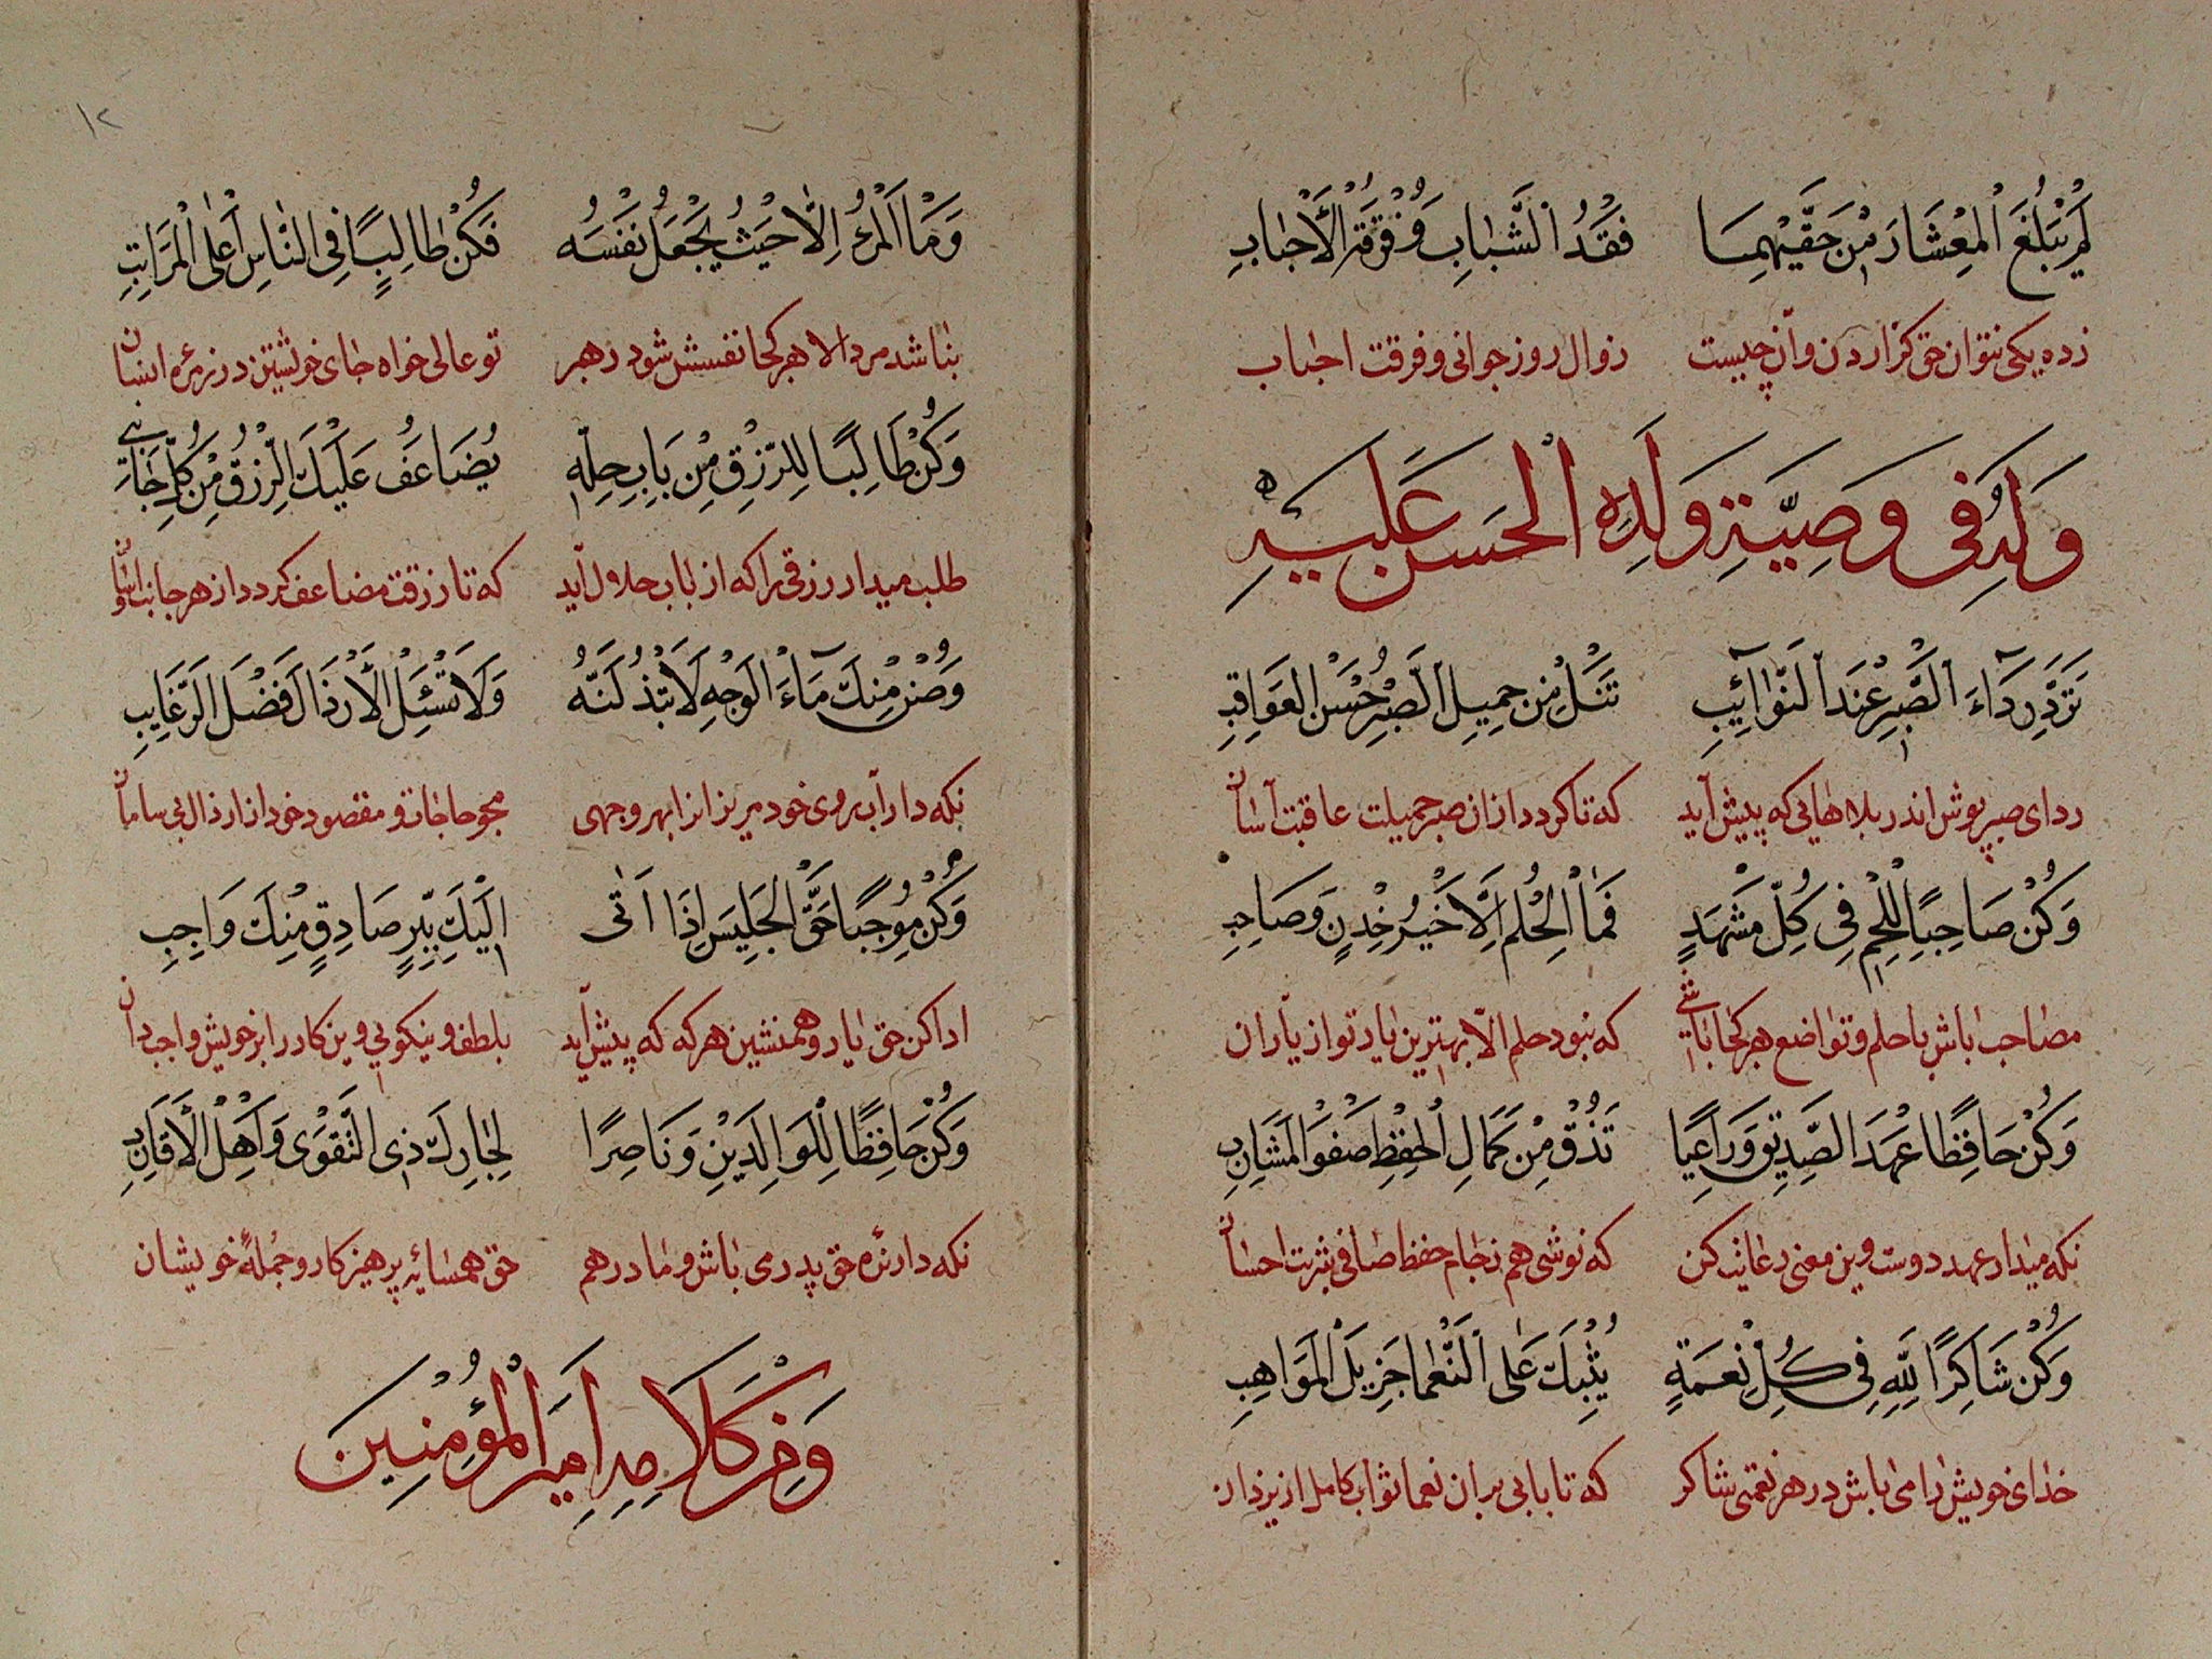 لَمْ يَبْلُغَ الْمِعْشَارَ مِنْ حَقَّيْهِمَا فَقْدُ الشَّبَابِ وَفُرْقَةِ الْأَحْبَابِ
زده یکی نتوان حق گزاردن وان چیست زوال روز جوانی و فرقت احباب
وَلَهُ فِي وَصِيَّةِ وَلَدِهِ الْحَسَنِ عَلَيْهِ
تَرَدَّ رِدَاءَ الصَّبْرِ عِنْدَ النَّوَائِبِ تَنَلْ مِنْ جَمِيلِ الصَّبْرِ حُسْنَ الْعَوَاقِبِ
ردای صبر پوش اندر بلاهایی که پیش آید که تا کردد ازان صبر جمیلت عاقبت آسان
وَكُنْ صَاحِبًا لِلْحِلْمِ فِي كُلِّ مَشْهَدٍ فَمَا الْحِلْمُ إِلَّا خَيْرُ خِدْنٍ وَصَاحِبِ
مصاحب باش با حلم و تواضع هر کجا باشی که نبود حلم الّا بهترین یار تو از یاران
وَكُنْ حَافِظًا عَهْدَ الصَّدِيقِ وَرَاعِيًا تَذُقْ مِنْ كَمَالِ الْحِفْظِ صَفْوَ الْمَشَارِبِ
نکه میدار عهد دوست وین معنی رعایت کن که نوشی هم زجام حفظ صافی شربت احسان
وَكُنْ شَاكِرًا لِلَّهِ فِي كُلِّ نِعْمَةٍ يُثِبْكَ عَلَى النُّعْمَا جَزِيلَ الْمَوَاهِبِ
خدای خویش را می باش در هر نعمتی شاکر که تا یابی بران نعما ثواب کامل از یزدان
١٢
وَمَا الْمَرْءُ إِلَّا حَيْثُ يَجْعَلُ نَفْسَهُ فَكُنْ طَالِبًا فِي النَّاسِ أَعْلَى الْمَرَاتِبِ
نباشد مرد الا هر کجا نفسش شود رهبر تو عالی خواه جای خویشتن در زمره انسان
وَكُنْ طَالِبًا لِلرِّزْقِ مِنْ بَابِ حِلِّهِ يُضَاعَفْ عَلَيْكَ الرِّزْقُ مِنْ كُلِّ جَانِبِ
طلب میدار رزقی را که از باب حلال آید که تا رزقت مضاعف کردد از هر جانب
وَصُنْ مِنْكَ مَاءَ الْوَجْهِ لَا تَبْذُلَنَّهُ وَلَا تَسْئَلِ الْأَرْذَالَ فَضْلَ الرَّغَايِبِ
نکه دار آب روی خود مریز انرا بهر وجهی مجو حاجات و مقصود خود از ارذال بی سامان
وَكُنْ مُوجِبًا حَقَّ الْجَلِيسِ إِذَا أَتَى إِلَيْكَ بِبِرٍّ صَادِقٍ مِنْكَ وَاجِبِ
ادا کن حق یار و همنشین هر که که پیش آید بلطف و نیکویی وین کار را بر خویش واجب دان
وَكُنْ حَافِظًا لِلْوَالِدَيْنِ وَنَاصِرًا لِجَارِكَ ذِي التَّقْوَى وَأَهْلِ الْأَقَارِبِ
نکه دارنده حق پدر می باش و مادر هم حق همسایهٔ پرهیزکار و جملهٔ خویشان
وَمِنْ كَلَامِ أَمِيرِ الْمُؤْمِنِينَ